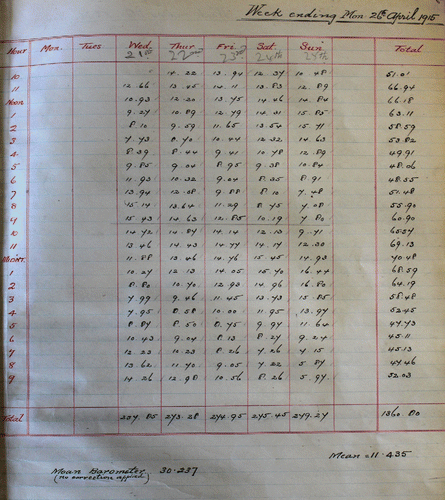 Week ending Mon. 26th April 1915
Hour Mon. Tues Wed. 21st Thur 22nd Fri. 23rd Sat. 24th Sun 25th Total
10 14.22 13.94 12.34 10.48 51.01
11 12.66 13.45 14.11 13.83 12.89 66.94
Noon 10.93 12.20 13.75 14.46 14.84 66.18
1 9.27 10.89 12.79 14.31 15.85 63.11
2 8.10 9.59 11.65 13.54 15.71 58.59
3 7.73 8.70 10.44 12.32 14.63 53.82
4 8.39 8.44 9.41 10.78 12.89 49.91
5 9.85 9.04 8.95 9.38 10.84 48.06
6 11.93 10.32 9.04 8.35 8.91 48.55
7 13.94 12.08 9.88 8.10 7.48 51.48
8 15.14 13.64 11.29 8.75 7.08 55.90
9 15.43 14.63 12.85 10.19 7.80 60.90
10 14.72 14.87 14.14 12.13 9.71 65.57
11 13.46 14.43 14.77 14.17 12.30 69.13
Midnt. 11.88 13.46 14.76 15.45 14.93 70.48
1 10.27 12.13 14.05 15.70 16.44 68.59
2 8.80 10.70 12.93 14.96 16.80 64.19
3 7.99 9.46 11.45 13.73 15.85 58.48
4 7.95 8.58 10.00 11.95 13.97 52.45
5 8.87 8.50 8.75 9.97 11.64 47.73
6 10.43 9.04 8.13 8.27 9.24 45.11
7 12.23 10.23 8.26 7.26 7.15 45.13
8 13.62 11.70 9.05 7.22 5.87 47.46
9 14.26 12.98 10.56 8.26 5.97 52.03
Total 273.28 274.95 275.45 279.27 1360.80
Mean = 11.435
Mean Barometer 30.237
(no correction applied)